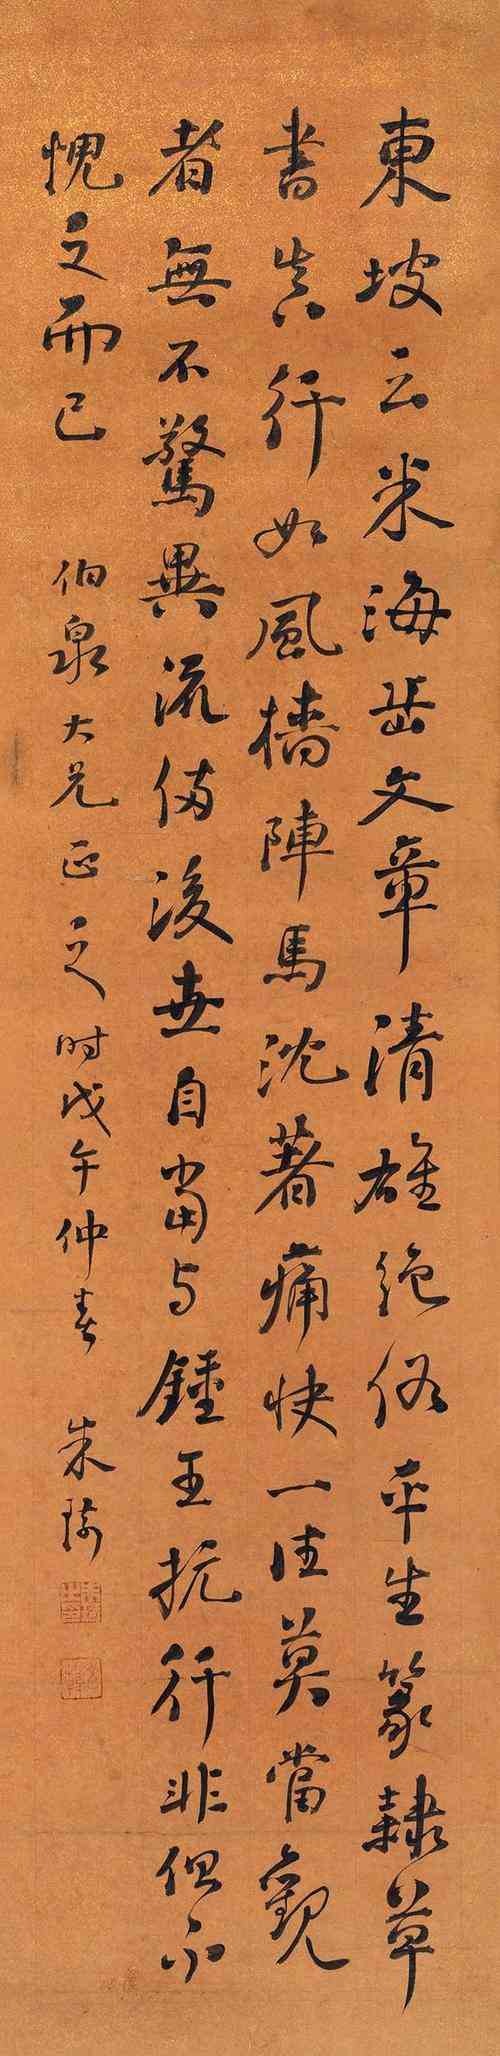 東坡云米海岳文章清雄絶俗平生篆隸草
書真行如風檣陣馬沈著痛快一住莫當觀
者無不驚異流傳後世自當与鍾王抗行非但不
愧之而已　伯泉大兄正之时戊午仲春　朱瑜